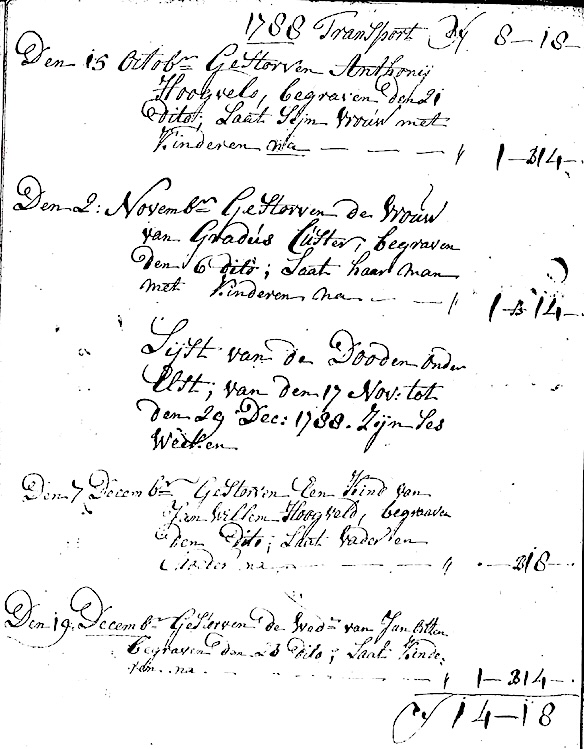 1788 Transport ƒ 8-18-
Den 15 Octobr Gestorven Anthonij
Hoogvelt, begraven den 21
dito; Laat Sijn vrouw met
Kinderen na — — — " 1-14-
Den 2: Novembr Gestorven de Vrouw
van Gradus Cüster, begraven
den 6 dito; Laat haar man
met Kinderen na — — " 1-14-
Lijst van de Dooden onder
Elst; van den 17 Nov: tot
den 29 Dec: 1788. Zijn ses
Weeken
Den 7 Decembr Gestorven Een Kind van
Jan Willem Hoogveld, begraven
den dito; Laat Vader en
na — — — " -18-
Den 19 Decembr Gestorven de Wedn van Jan
begraven den 23 dito; Laat Kinde-
ren na — — — " 1-14-
ƒ 14-18